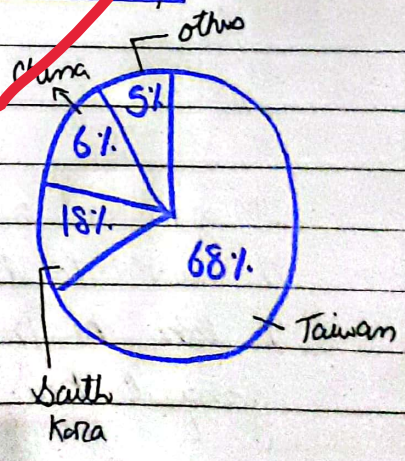 othes
China
5%
6%
18%
68%
Taiwan
Saith
Kora